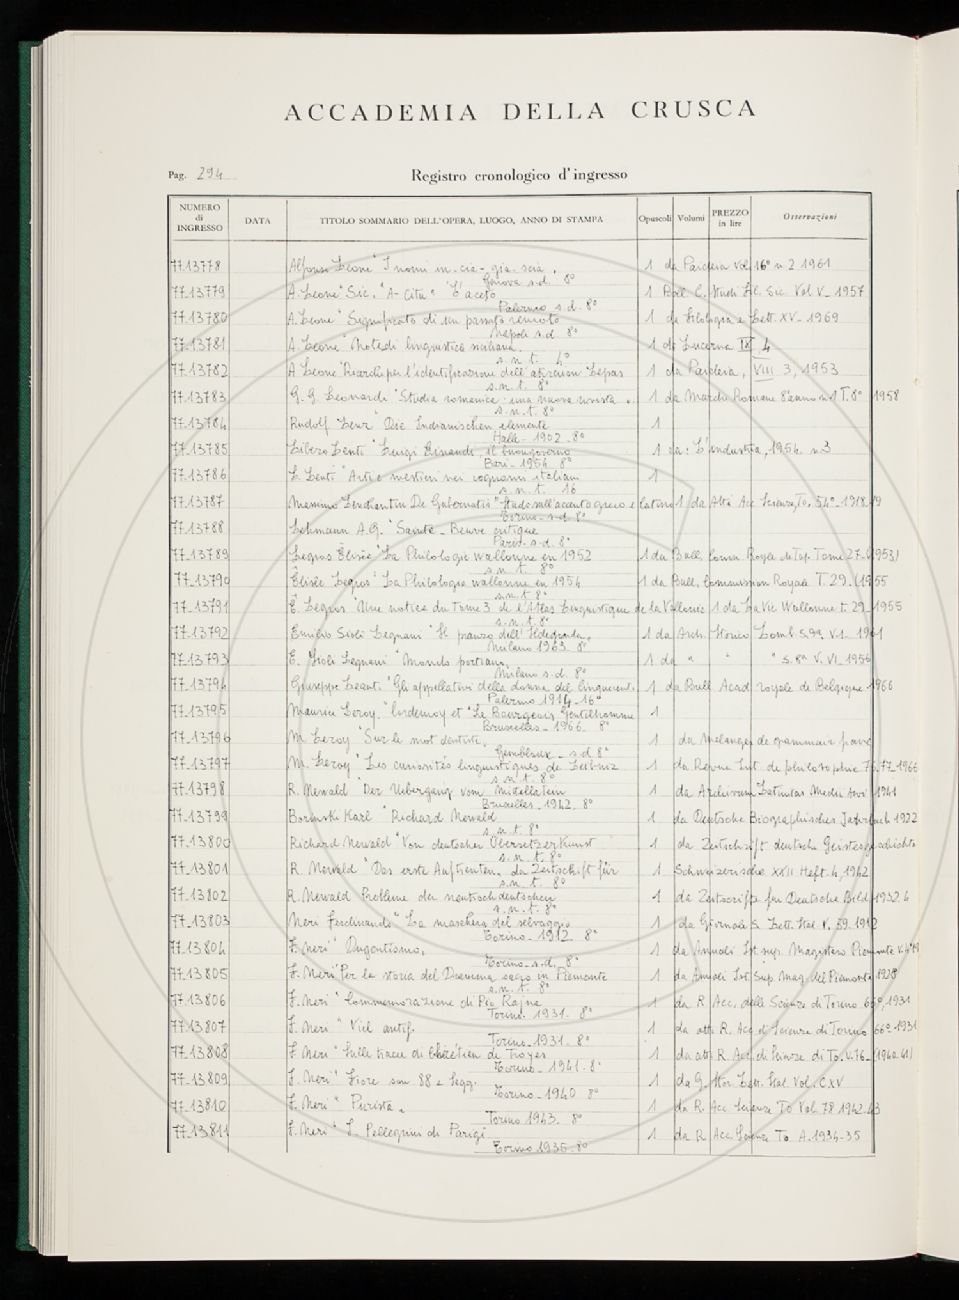 ACCADEMIA DELLA CRUSCA
Pag. 294
Registro cronologico d'ingresso
NUMERO di INGRESSO DATA TITOLO SOMMARIO DELL'OPERA, LUOGO, ANNO DI STAMPA Opuscoli Volumi PREZZO in lire Osservazioni
77.13778 Alfonso Leone "I nomi in -cia - gia - scia, 1 da Paideia Vol 16° n. 2 1961
Genova s.d. 8°
77.13779 A. Leone "Sic. "A- Citu" "L'aceto 1 Boll. C. Studi Fil. Sic. Vol V 1957
Palermo s.d. 8°
77.13780 A. Leone "Significato di un passato remoto 1 da Filologia e Lett. XV - 1969
Napoli s.d. 8°
77.13781 A. Leone "Note di linguistica siciliana. 1 da Lucerna IX, 4
s.n.t. 4°
77.13782 A. Leone "Ricerche per l'identificazione dell' Lepas 1 da Paideia, VIII 3, 1953
s.n.t. 8°
77.13783 G. G. Leonardi "Studia romanica: una nuova rivista. 1 da Romane 8° anno n. 1 T. 8° 1958
s.n.t. 8°
77.13784 Rudolf Lenz "Die Indianischen elemente 1
Halle - 1902 - 8°
77.13785 Libero Lenti "Luigi Einaudi, il buongoverno 1 da: L'industria, 1954. n. 3
Bari - 1954 8°
77.13786 L. Lenti "Arti e mestieri nei cognomi italiani 1
s.n.t. 16
77.13787 Massimo Lenchantin De Gubernatis "Studi sull'accento greco e latino 1 da Atti Acc. Scienze, To, 54° - 1918-19
Torino - s.d. 8°
77.13788 Lehmann A. G. "Sainte - Beuve critique
Paris - s.d. 8°
77.13789 Legros Élisée "La Philologie wallonne en 1952 1 da Bull. Comm. Royale de Top. Tome 27 - (1953)
s.n.t. 8°
77.13790 Élisée Legros "La Philologie wallonne en 1954 1 da Bull. Commission Royale T. 29. (1955
s.n.t. 8°
77.13791 É. Legros "Une notice du Tome 3 de l'Atlas Linguistique de la Wallonie 1 da La Vie Wallonne t. 29 1955
s.n.t. 8°
77.13792 Emilio Sioli Legnani "Il pranzo dell' 1 da Arch. Storico Lomb. S. 9a V. 1 - 1961
Milano 1963 8°
77.13793 E. Sioli Legnani "Mondo portiano, 1 da " " " S. 8a V. VI 1956
Milano s.d. 8°
77.13794 Giuseppe Leanti "Gli appellativi della donna del 1 da Bull Acad. royale de Belgique 1966
Palermo 1914 - 16°
77.13795 Maurice Leroy, "Cordemoy et "Le Bourgeois Gentilhomme 1
Bruxelles - 1966. 8°
77.13796 M. Leroy "Sur le mot dentiste, 1 da Mélanges de grammaire franç
Gembloux - s.d 8°
77.13797 M. Leroy "Les curiosités linguistiques de Leibniz 1 da Revue Int. de philosophie 76-77 - 1966
s.n.t. 8°
77.13798 R. Newald "Der Uebergang vom Mittellatein 1 da Archivum Latinitas Medii Aevi 1941
Bruxelles - 1942. 8°
77.13799 Borinski Karl "Richard Newald 1 da Deutsche Biographisches Jahrbuch 1922
s.n.t. 8°
77.13800 Richard Newald "Von deutscher Übersetzer Kunst 1 da Zeitschrift deutsche Geistesgeschichte
s.n.t. 8°
77.13801 R. Newald "Das erste Auftreten. da Zeitschift für 1 Schweizerische XXII Heft. 4, 1942
s.n.t. 8°
77.13802 R. Newald Probleme der neutsch deutschen 1 da Zeitscrift für Deutsche Bild. 1932 6
s.n.t. 8°
77.13803 Neri Ferdinando "La maschera del selvaggio 1 da Giornale S. Lett. Ital V. 59. 1912
Torino - 1912. 8°
77.13804 F. Neri "Dugentismo, 1 da Annali Ist. sup. Magistero Piemonte V. 4°
Torino - s.d. 8°
77.13805 F. Neri "Per la storia del Dramma sacro in Piemonte 1 da Annali Ist. Sup. Mag. del Piemonte 1928
s.n.t. 8°
77.13806 F. Neri "Commemorazione di Pio Rajna 1 da R. Acc. delle Scienze di Torino 66°, 1931
Torino. 1931. 8°
77.13807 F. Neri "Viel antif. 1 da atti R. Acc. di Scienze di Torino 66° - 1931
Torino - 1931. 8°
77.13808 F. Neri "Sulle tracce di Chrétien de Troyes 1 da atti R. Acc. di Scienze di To. V. 76 - (1940-41)
Torino - 1941. 8°
77.13809 F. Neri "Fiore son 88 e segg. 1 da G. Stor. Lett. Ital. Vol. CXV
Torino - 1940 8°
77.13810 F. Neri "Purista. 1 da R. Acc. Scienze To Vol. 78 1942-43
Torino 1943. 8°
77.13811 F. Neri "I Pellegrini di Parigi 1 da R. Acc. Scienze To. A. 1934-35
Torino 1935. 8°